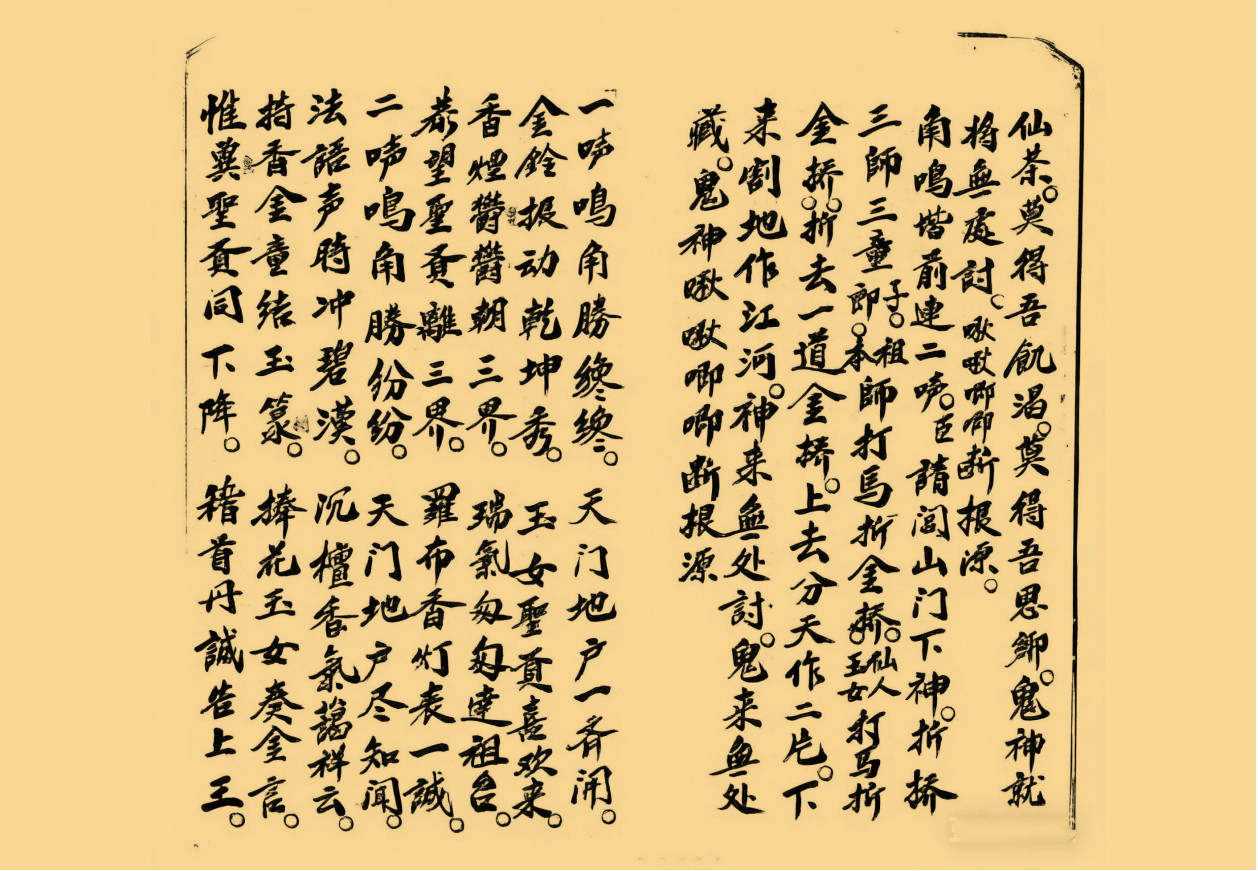 仙茶。莫得吾飢渴。莫得吾思鄉。鬼神就
将無處討。啾啾唧唧断根源。
角鳴堦前連二声。臣請閭山门下神。折橋
三師三童子。郎。祖本師打馬折金橋。仙人玉女打马折
金橋。折去一道金橋。上去分天作二片。下
来割地作江河。神来無处討。鬼来無处
藏。鬼神啾啾唧唧断根源
一声鳴角勝纔纔。天门地户一斉開。
金鈴振动乾坤秀。玉女聖賢喜欢来。
香煙欝欝朝三界。瑞氣匆匆達祖台。
恭望聖賢離三界。羅布香灯表一誠。
二声鳴角勝纷纷。天门地户尽知闻。
法語声時冲碧漢。沉檀香氣藹祥云。
持香金童结玉篆。捧花玉女奏金言。
惟冀聖賢同下降。稽首丹誠告上王。